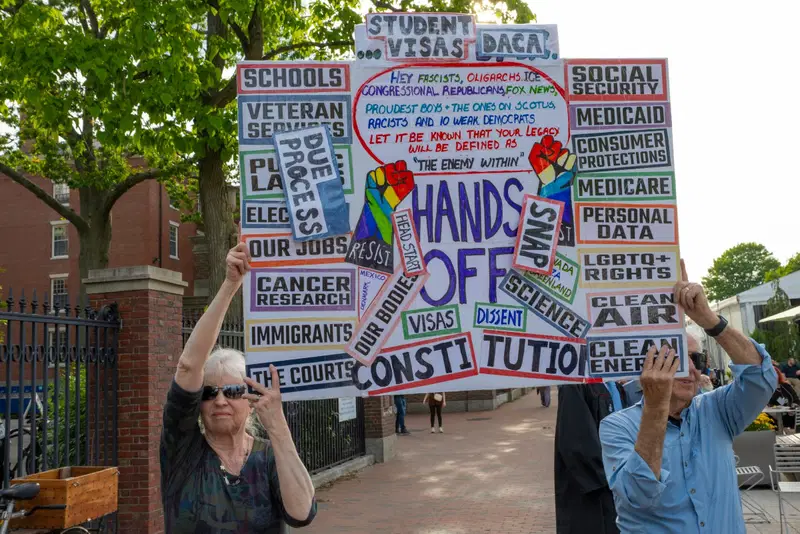 STUDENT
...VISAS
DACA
SCHOOLS
VETERAN
SERVICES
DUE
PROCESS
OUR JOBS
CANCER
RESEARCH
IMMIGRANTS
THE COURTS
HEY FASCISTS, OLIGARCHS, ICE
CONGRESSIONAL REPUBLICANS, FOX NEWS,
PROUDEST BOYS + THE ONES ON SCOTUS,
RACISTS AND 10 WEAK DEMOCRATS
LET IT BE KNOWN THAT YOUR LEGACY
WILL BE DEFINED AS
"THE ENEMY WITHIN"
HANDS
OFF
RESIST
HEAD START
MEXICO
OUR BODIES
SNAP
SCIENCE
VISAS
DISSENT
CONSTITUTION
SOCIAL
SECURITY
MEDICAID
CONSUMER
PROTECTIONS
MEDICARE
PERSONAL
DATA
LGBTQ+
RIGHTS
CLEAN
AIR
CLEAN
ENERGY